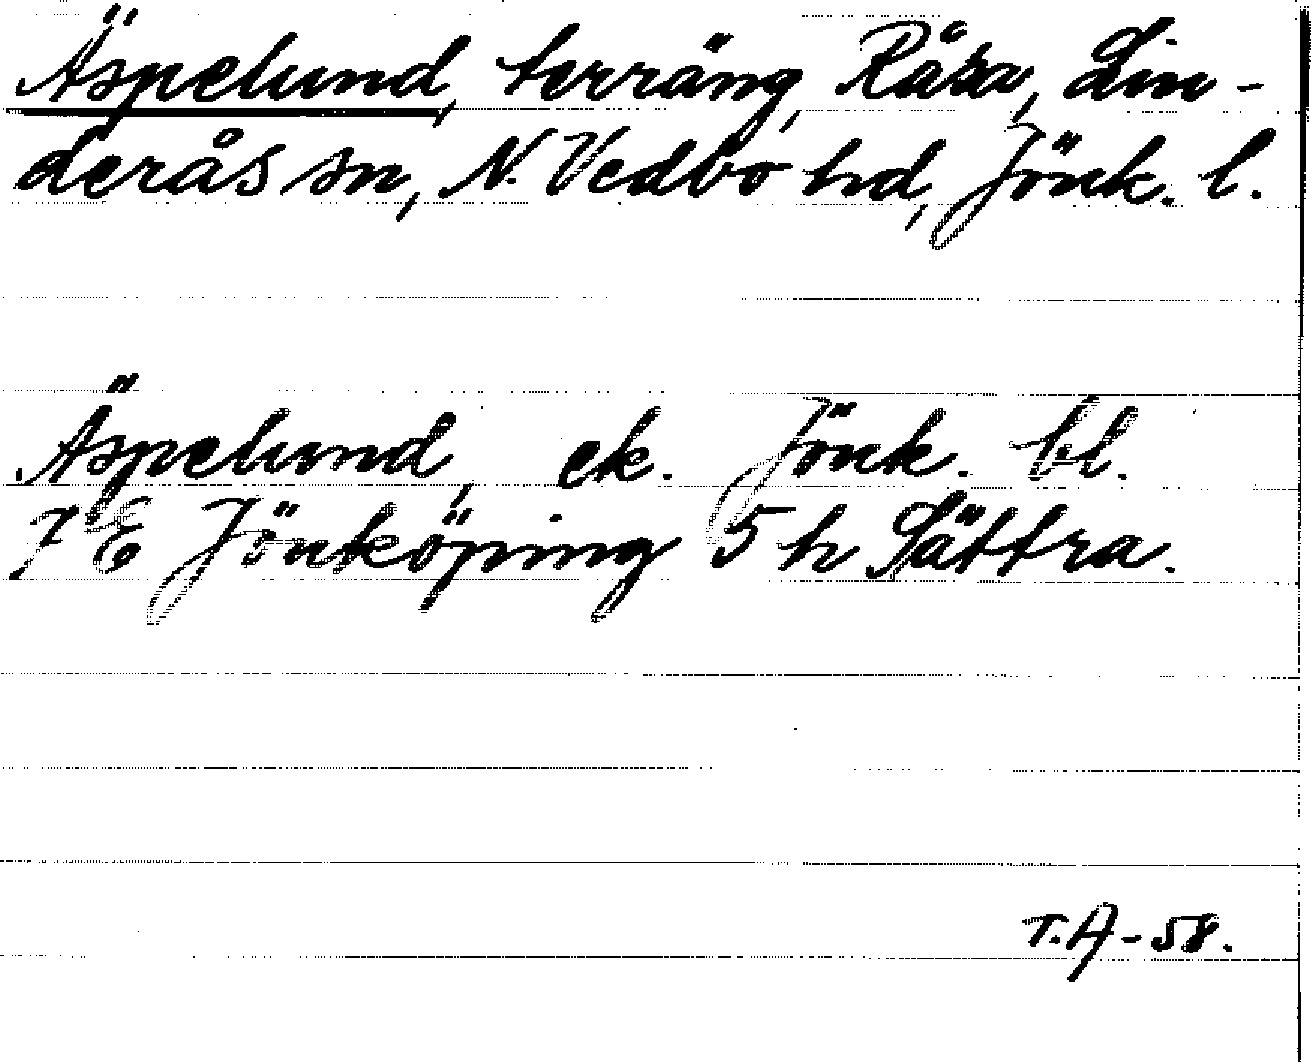 Äspelund, terräng, Råsa, Lin-
derås sn, N. Vedbo hd, Jönk. l.
Äspelund, ek. Jönk. bl.
7 E Jönköping 5 h Sättra.
T.A-58.